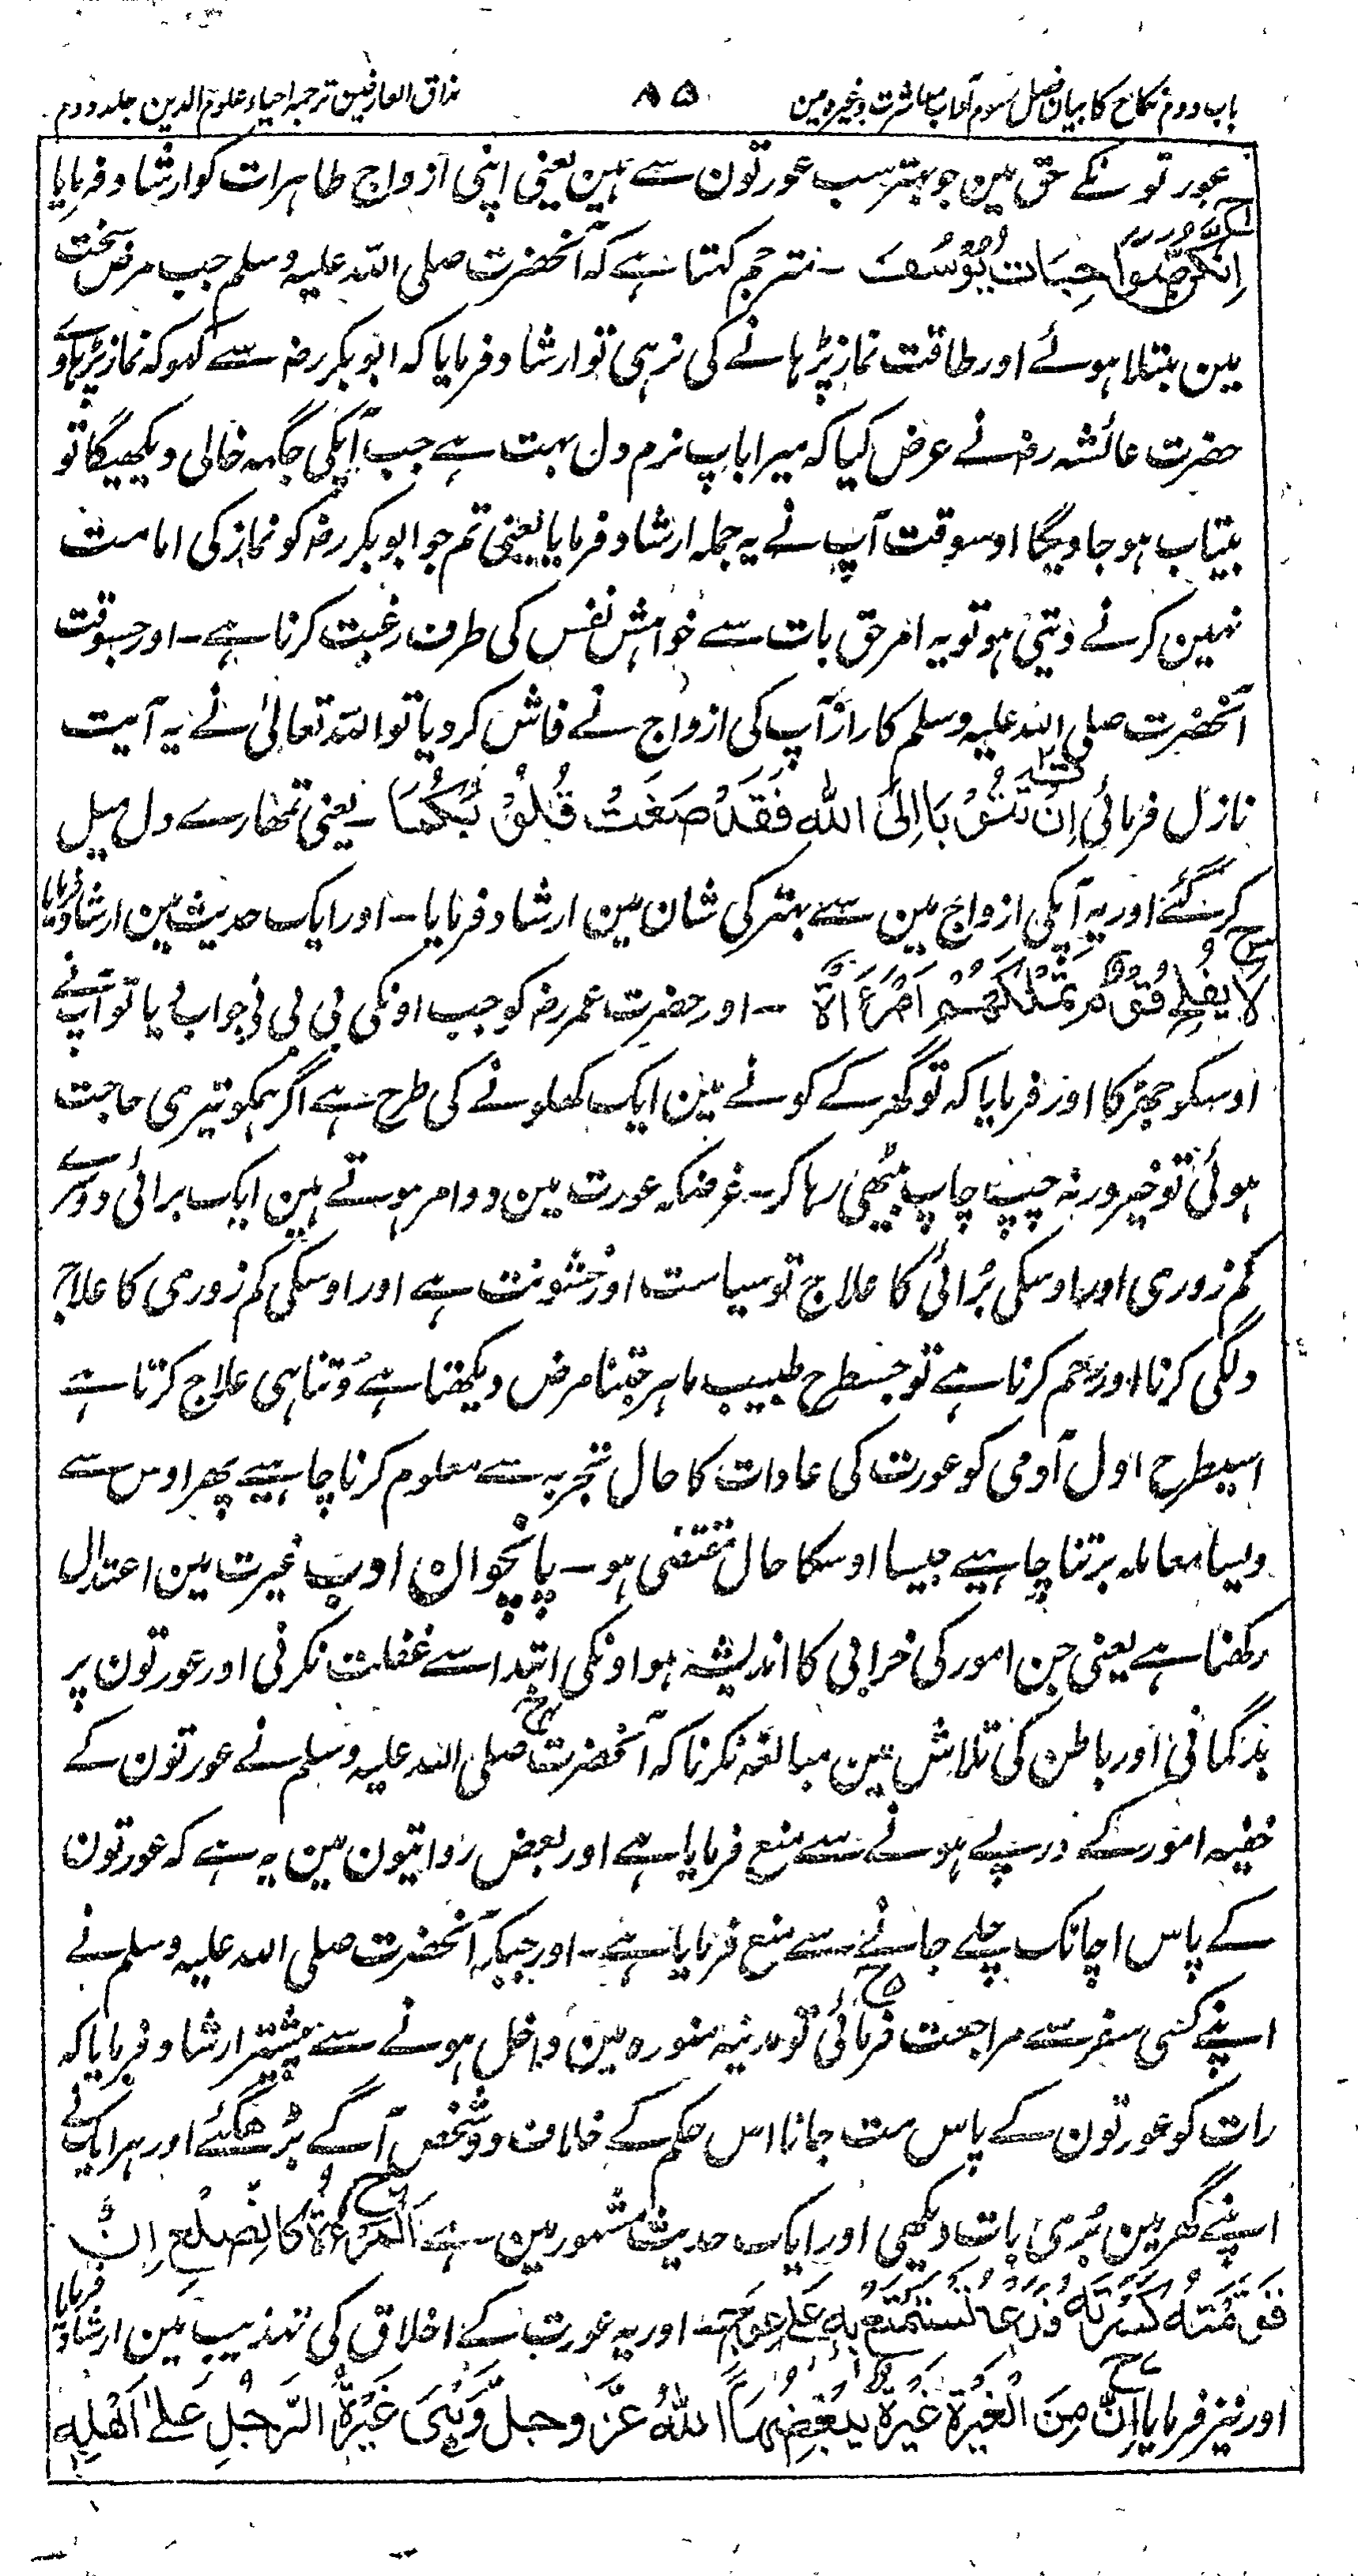 باب دوم نکاح کا بیان فصل سوم آداب معاشرت وغیرہ مین ۸۵ مذاق العارفین ترجمہ احیاء علوم الدین جلد دوم
عورتونکے حق مین جو بہتر سب عورتون سے ہین یعنی اپنی ازواج طاہرات کو ارشاد فرمایا
اِنَّكُنَّ صَوَاحِبَاتُ يُوْسُفَ ۔ مترجم کہتا ہے کہ آنحضرت صلی اللہ علیہ وسلم جب مرض سخت
مین مبتلا ہوئے اور طاقت نماز پڑہانے کی نرہی تو ارشاد فرمایا کہ ابو بکر رضہ سے کہو کہ نماز پڑہاوے
حضرت عائشہ رضہ نے عرض کیا کہ میرا باپ نرم دل بہت ہے جب آپکی جگہہ خالی دیکھیگا تو
بیتاب ہو جاویگا اوسوقت آپ نے یہ جملہ ارشاد فرمایا یعنی تم جو ابو بکر رضہ کو نماز کی امامت
نہین کرنے دیتی ہو تو یہ امر حق بات سے خواہش نفس کی طرف رغبت کرنا ہے ۔ اور جسوقت
آنحضرت صلی اللہ علیہ وسلم کا راز آپ کی ازواج نے فاش کر دیا تو اللہ تعالیٰ نے یہ آیت
نازل فرمائی اِنْ تَتُوْبَا اِلَى اللهِ فَقَدْ صَغَتْ قُلُوْبُكُمَا ۔ یعنی تمھارے دل میل
کر گئے اور یہ آپکی ازواج مین سے بہتر کی شان مین ارشاد فرمایا ۔ اور ایک حدیث مین ارشاد فرمایا
لَا يُفْلِحُ قَوْمٌ تَمْلِكُهُمُ امْرَأَةٌ ۔ اور حضرت عمر رضہ کو جب اونکی بی بی نے جواب دیا تو آپ نے
اوسکو جھڑکا اور فرمایا کہ تو گھر کے کونے مین ایک کھلونے کی طرح ہے اگر ہمکو تیری حاجت
ہوئی تو خیر ورنہ چپ چاپ بیٹھی رہا کر ۔ غرضکہ عورت مین دو امر ہوتے ہین ایک برائی دوسرے
کم زوری اور اوسکی بُرائی کا علاج تو سیاست اور خشونت ہے اور اوسکی کم زوری کا علاج
دلگی کرنا اور رحم کرنا ہے تو جسطرح طبیب ماہر جتنا مرض دیکھتا ہے وُتنا ہی علاج کرتا ہے
اسیطرح اول آدمی کو عورت کی عادات کا حال تجربہ سے معلوم کرنا چاہیے پھر اوس سے
ویسا معاملہ برتنا چاہیے جیسا اوسکا حال مقتضی ہو ۔ پانچوان ادب غیرت مین اعتدال
رکھنا ہے یعنی جن امور کی خرابی کا اندیشہ ہو اونکی ابتدا سے غفلت نکرنی اور عورتون پر
بدگمانی اور باطن کی تلاش مین مبالغہ نکرنا کہ آنحضرت صلی اللہ علیہ وسلم نے عورتون کے
خفیہ امور کے درپے ہونے سے منع فرمایا ہے اور بعض روایتون مین یہ ہے کہ عورتون
کے پاس اچانک چلے جانے سے منع فرمایا ہے ۔ اور جبکہ آنحضرت صلی اللہ علیہ وسلم نے
اپنے کسی سفر سے مراجعت فرمائی تو مدینہ منورہ مین داخل ہونے سے پیشتر ارشاد فرمایا کہ
رات کو عورتون کے پاس مت جانا اس حکم کے خلاف دو شخص آگے بڑھ گئے اور ہر ایک نے
اپنے گھر مین بُری بات دیکھی اور ایک حدیث مشہور مین ہے اَلْمَرْءَةُ كَالضِّلْعِ اِنْ
قَوَّمْتَهُ كَسَرْتَهُ فَدَعْهُ تَسْتَمْتِعْ بِهِ عَلٰی عِوَجٍ ۔ اور یہ عورت کے اخلاق کی تہذیب مین ارشاد فرمایا
اور نیز فرمایا اِنَّ مِنَ الْغَيْرَةِ غَيْرَةً يُبْغِضُهَا اللهُ عَزَّ وَجَلَّ وَهِیَ غَيْرَةُ الرَّجُلِ عَلٰی اَهْلِهٖ